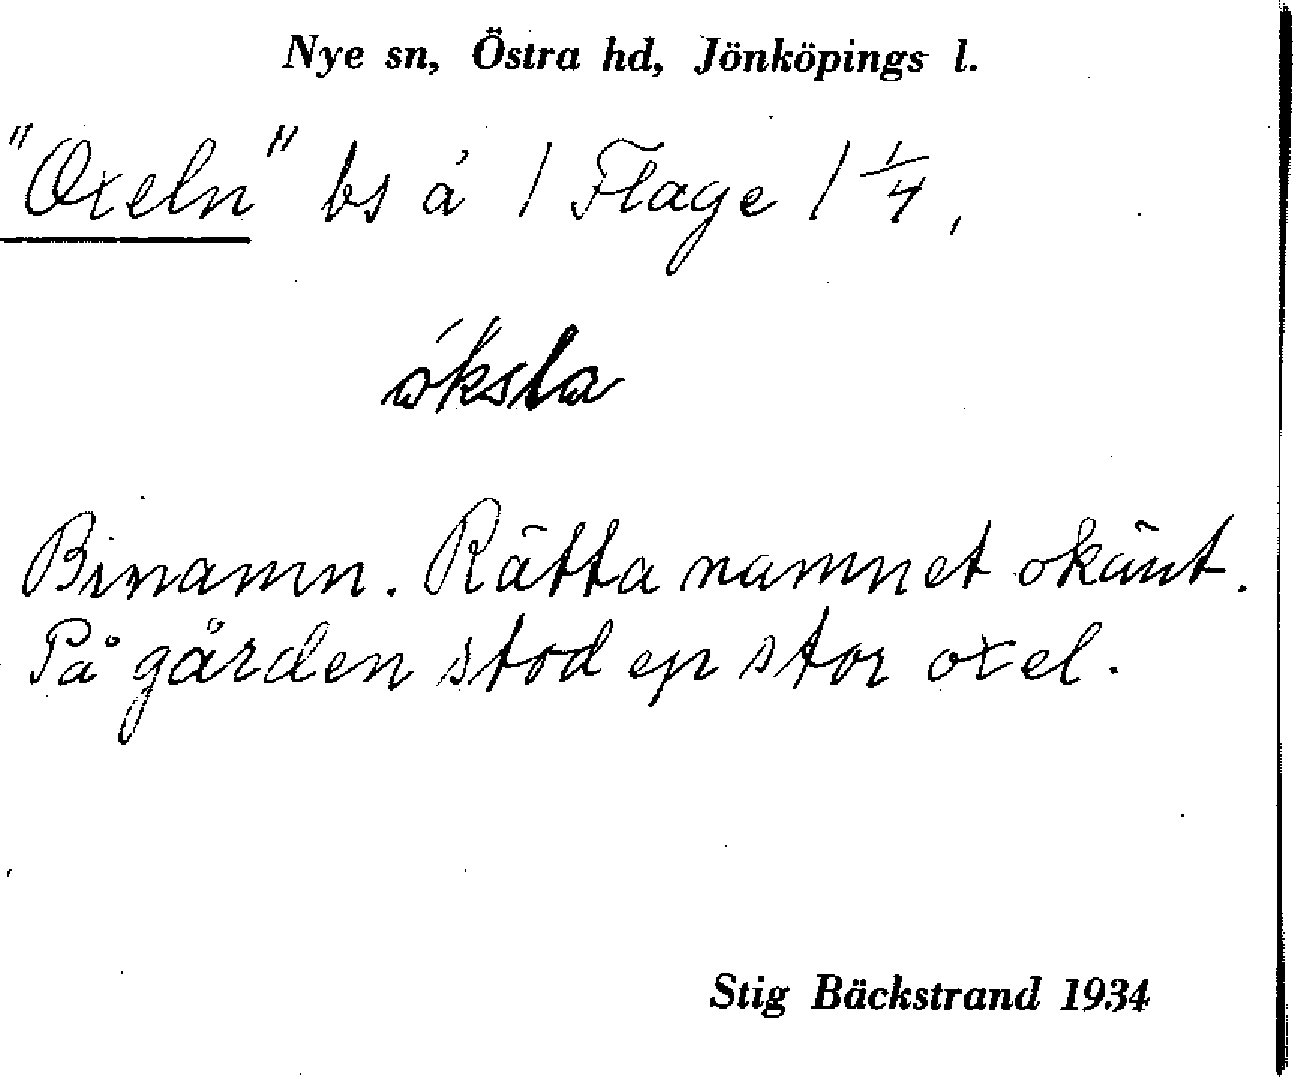 Nye sn, Östra hd, Jönköpings l.
"Oxeln" bs å 1 Flage 1 1/4,
Binamn. Rätta namnet okänt.
På gården stod en stor oxel.
Stig Bäckstrand 1934